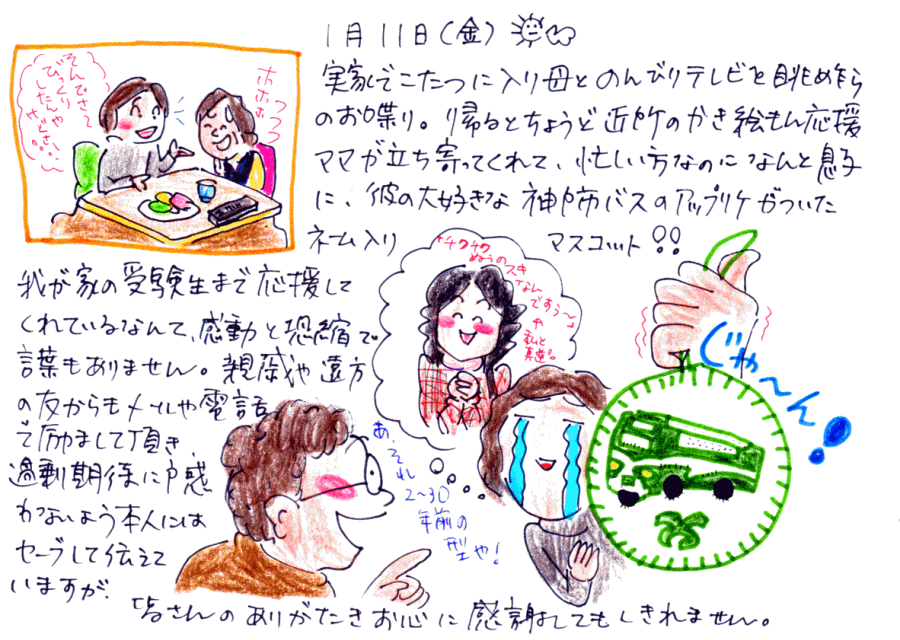 1月11日(金)
実家でこたつに入り母とのんびりテレビを眺めながら
のお喋り。帰るとちょうど近所のかき絵もん応援
ママが立ち寄ってくれて、忙しい方なのになんと息子
に、彼の大好きな神戸市バスのアップリケがついた
ネーム入り マスコット!!
そんでさ〜
びっくり
したんや
けどさ…
!!!
ホホホ
フフフ
我が家の受験生まで応援して
くれているなんて、感動と恐縮で
言葉もありません。親戚や遠方
の友からもメールや電話
で励まして頂き、
過剰期待に戸惑
わないよう本人には
セーブして伝えて
いますが、
チクチク
ぬうのスキ
なん
ですぅ〜
私と
真逆。
じゃ〜ん!
あ、それ
2〜30
年前の
型や!
皆さんのありがたきお心に感謝してもしきれません。